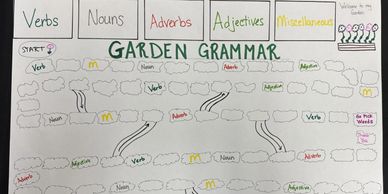 Verbs Nouns Adverbs Adjectives Miscellaneous
Welcome to my Garden
START GARDEN GRAMMAR
Verb M Noun Adverb Adjective
Verb Adjective M
Noun M Adverb Verb Noun Adverb Go Pick Weeds
Adjective Verb M Noun Adverb
Adverb Adjective Verb M